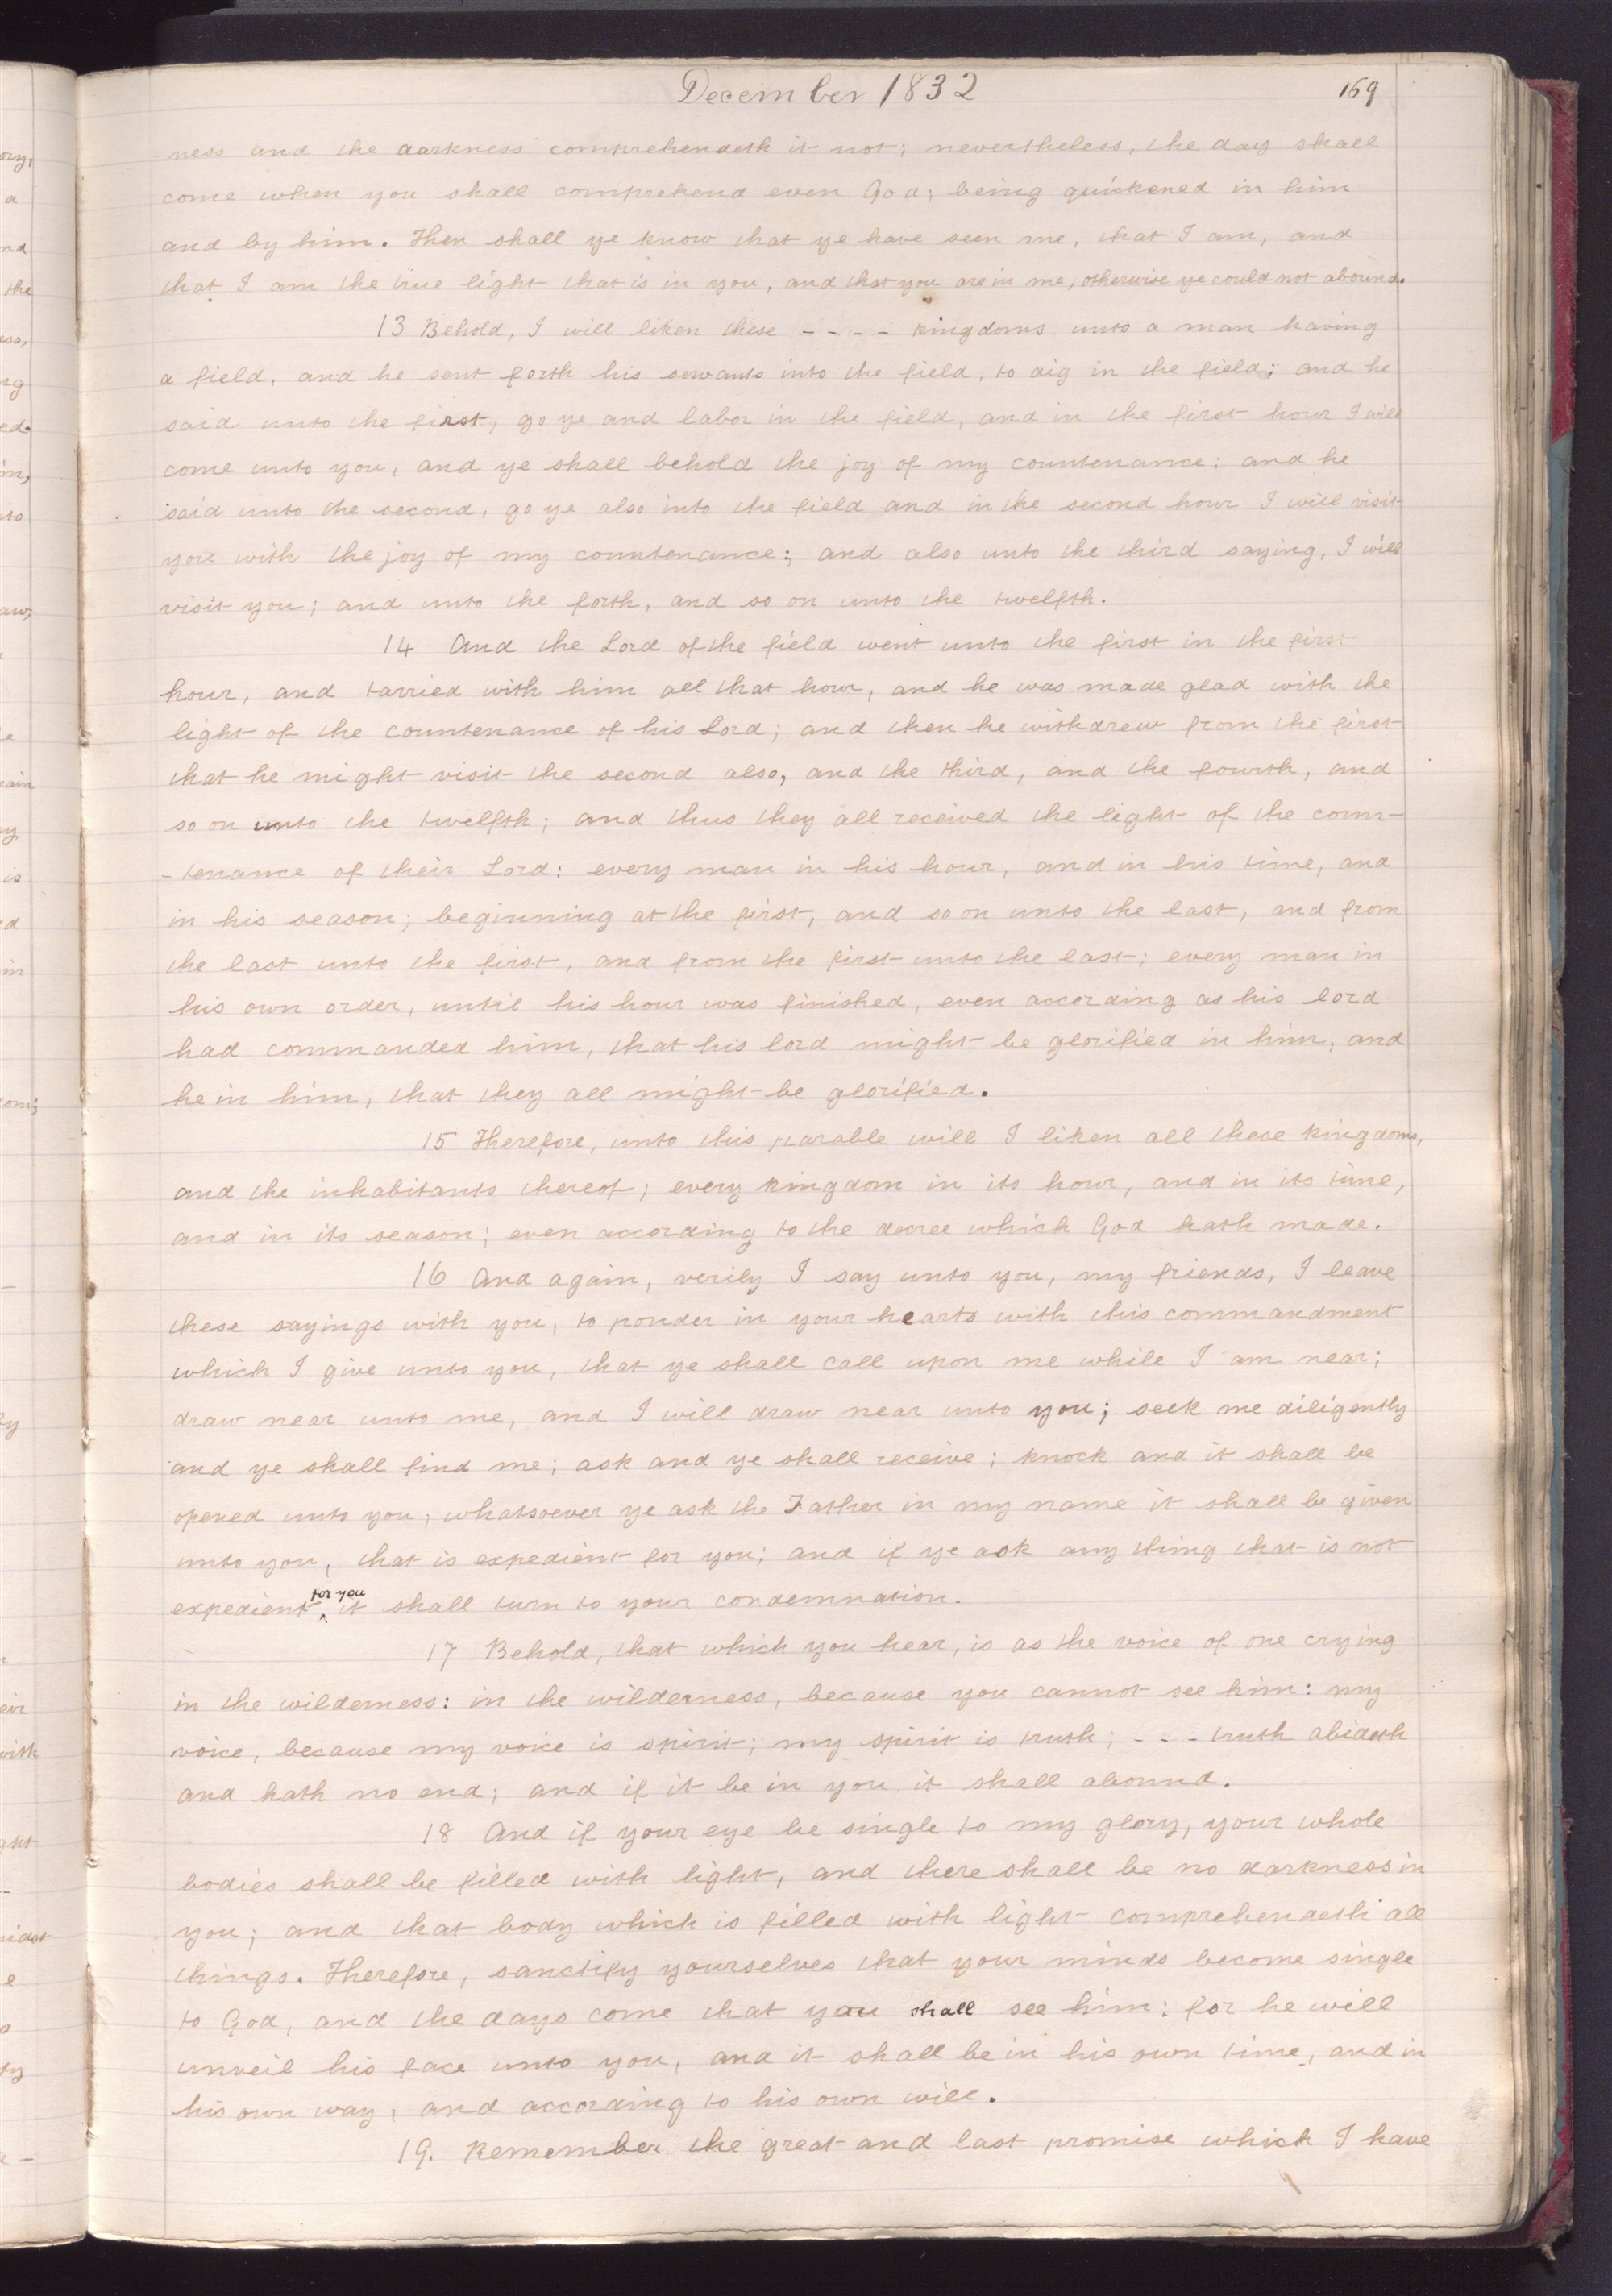 December 1832
169
-ness and the darkness comprehendeth it not; nevertheless, the day shall
come when you shall comprehend even God; being quickened in him
and by him. Then shall ye know that ye have seen me, that I am, and
that I am the true light that is in you, and that you are in me, otherwise ye could not abound.
13 Behold, I will liken these - - - - kingdoms unto a man having
a field, and he sent forth his servants into the field, to dig in the field; and he
said unto the first, go ye and labor in the field, and in the first hour I will
come unto you, and ye shall behold the joy of my countenance: and he
said unto the second, go ye also into the field and in the second hour I will visit
you with the joy of my countenance; and also unto the third saying, I will
visit you; and unto the forth, and so on unto the twelfth.
14 And the Lord of the field went unto the first in the first
hour, and tarried with him all that hour, and he was made glad with the
light of the countenance of his Lord; and then he withdrew from the first
that he might visit the second also, and the third, and the fourth, and
so on unto the twelfth; and thus they all received the light of the coun-
-tenance of their Lord: every man in his hour, and in his time, and
in his season; beginning at the first, and so on unto the last, and from
the last unto the first, and from the first unto the last; every man in
his own order, until his hour was finished, even according as his lord
had commanded him, that his lord might be glorified in him, and
he in him, that they all might be glorified.
15 Therefore, unto this parable will I liken all these kingdoms,
and the inhabitants thereof; every kingdom in its hour, and in its time,
and in its season; even according to the decree which God hath made.
16 And again, verily I say unto you, my friends, I leave
these sayings with you, to ponder in your hearts with this commandment
which I give unto you, that ye shall call upon me while I am near;
draw near unto me, and I will draw near unto you; seek me diligently
and ye shall find me; ask and ye shall receive; knock and it shall be
opened unto you; whatsoever ye ask the Father in my name it shall be given
unto you, that is expedient for you; and if ye ask any thing that is not
expedient for you it shall turn to your condemnation.
17 Behold, that which you hear, is as the voice of one crying
in the wilderness: in the wilderness, because you cannot see him: my
voice, because my voice is spirit; my spirit is truth; - - - truth abideth
and hath no end; and if it be in you it shall abound.
18 And if your eye be single to my glory, your whole
bodies shall be filled with light, and there shall be no darkness in
you; and that body which is filled with light comprehendeth all
things. Therefore, sanctify yourselves that your minds become single
to God, and the days come that you shall see him: for he will
unveil his face unto you, and it shall be in his own time, and in
his own way, and according to his own will.
19. Remember the great and last promise which I have